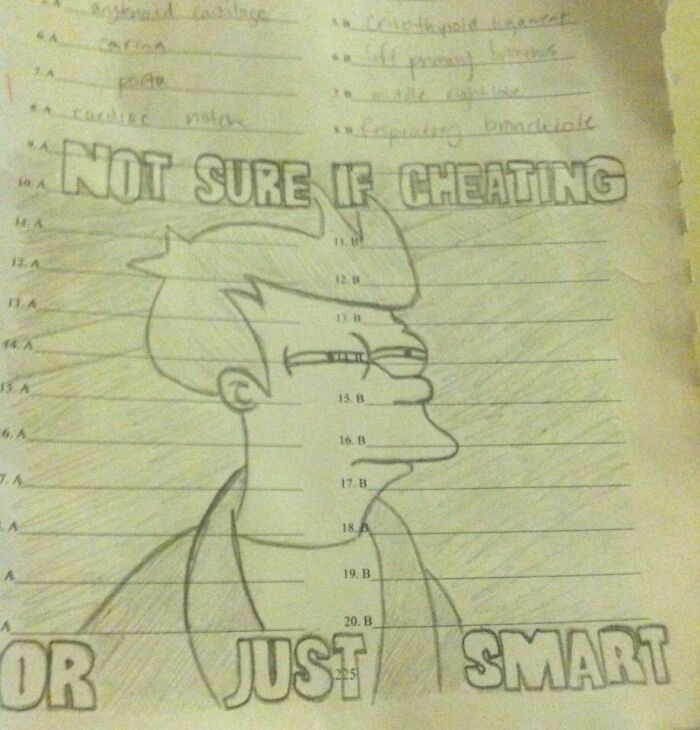 arytenoid cartilage 5. B cricothyroid ligament
6. A carina 6. B left primary bronchus
7. A 7. B middle right lobe
8. A cardiac notch 8. B Respiratory bronchiole
9. A
NOT SURE IF CHEATING
10. A
11. A 11. B
12. A 12. B
13. A 13. B
14. A 14. B
15. A 15. B
16. A 16. B
7. A 17. B
A 18. B
A 19. B
A 20. B
OR JUST SMART
225